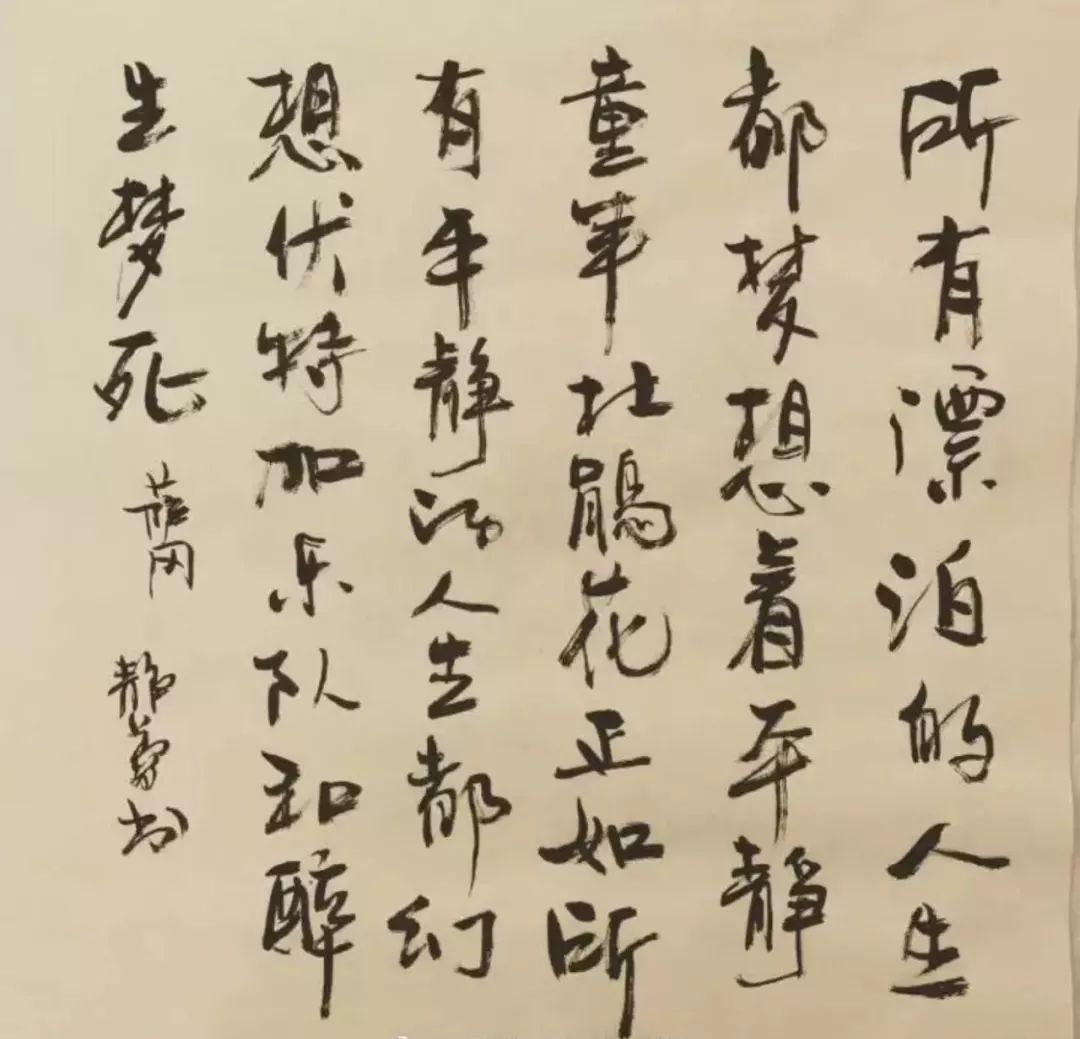 所有漂泊的人生
都梦想着平静
童年杜鹃花正如所
有平静的人生都幻
想伏特加乐队和醉
生梦死
萨冈
静易书